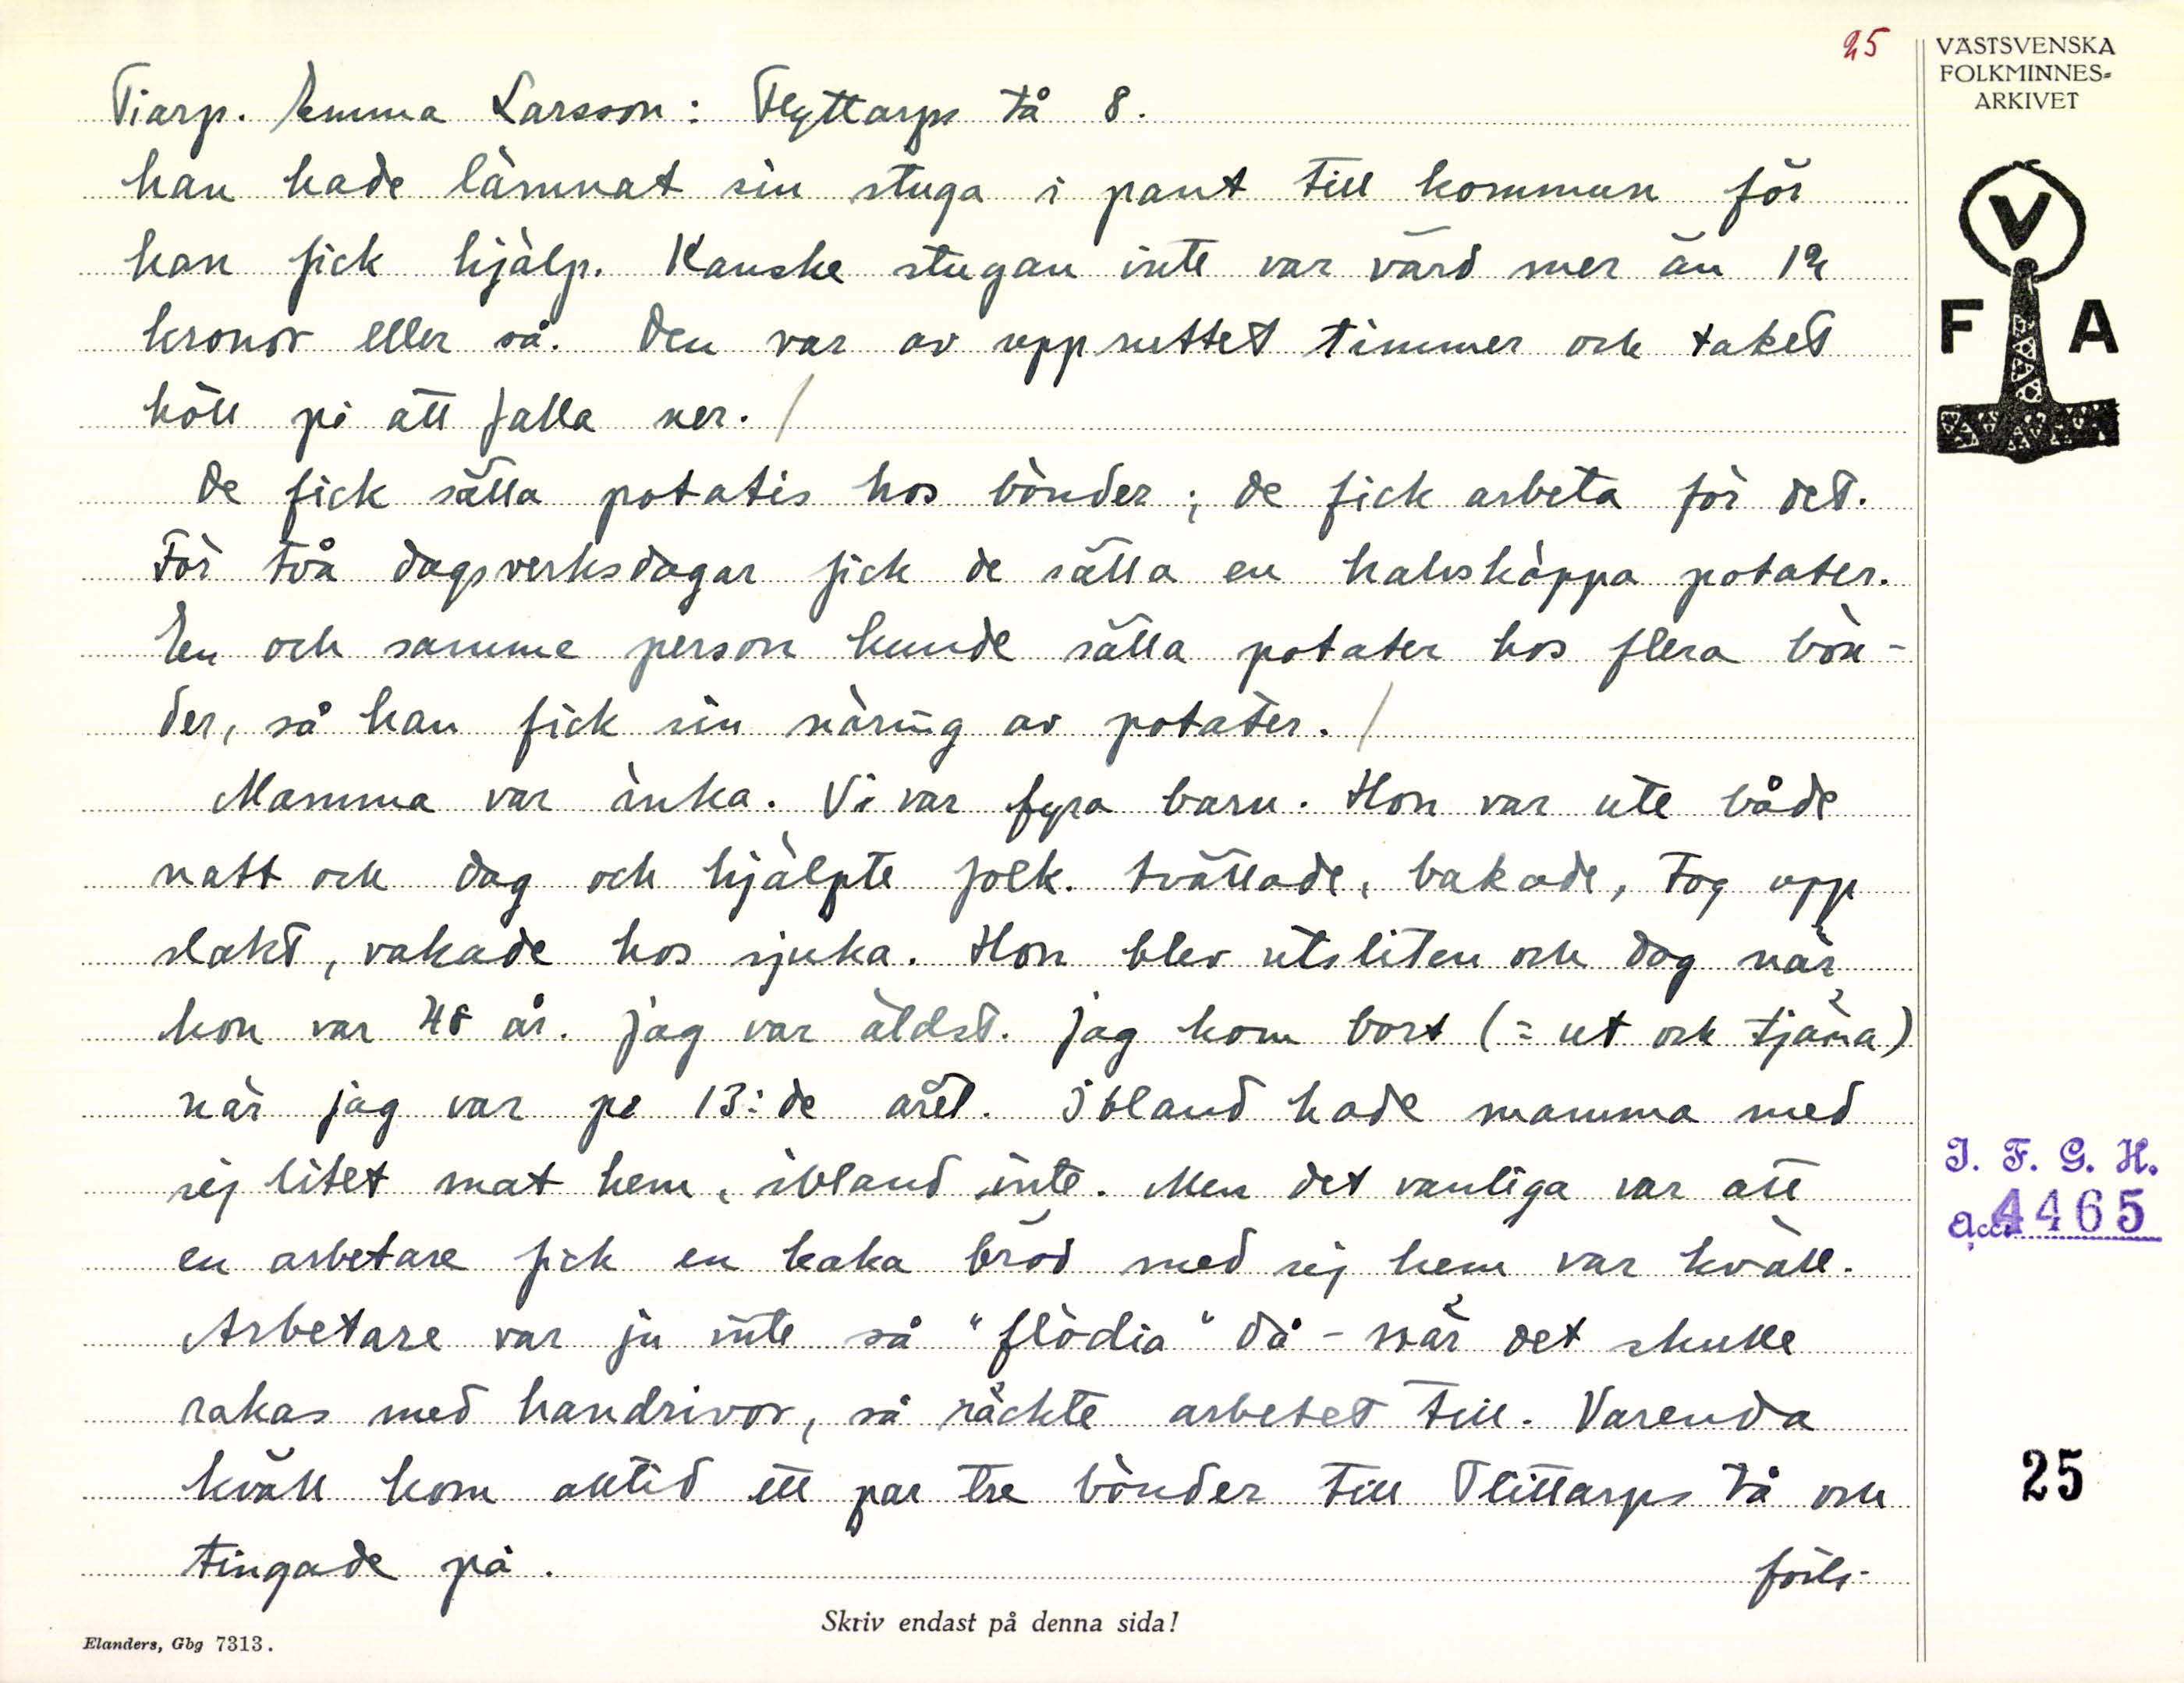 25
VÄSTSVENSKA
FOLKMINNES-
ARKIVET
Tiarp. Emma Larsson: Flyttarps tå 8.
han hade lämnat sin stuga i pant till kommun för
han fick hjälp. Kanske stugan inte var värd mer än 12
kronor eller så. Den var av uppruttet timmer och taket
höll på att falla ner. /
De fick sätta potatis hos bönder; de fick arbeta för det.
För två dagsverksdagar fick de sätta en halvskäppa potater.
En och samme person kunde sätta potater hos flera bön-
der, så han fick sin näring av potäter. /
Mamma var änka. Vi var fyra barn. Hon var ute både
natt och dag och hjälpte folk. tvättade, bakade, tog upp
slakt, vakade hos sjuka. Hon blev utsliten och dog när
hon var 48 år. Jag var äldst. Jag kom bort (= ut och tjäna)
när jag var på 13:de året. Ibland hade mamma med
sej litet mat hem, ibland inte. Men det vanliga var att
en arbetare fick en kaka bröd med sej hem var kväll.
Arbetare var ju inte så "flödia" då - när det skulle
rakas med handrivor, så räckte arbetet till. Varenda
kväll kom alltid ett par tre bönder till Flittarps tå och
tingade på.
forts.
V
F A
I. F. G. H.
Acc. 4465
25
Skriv endast på denna sida!
Elanders, Gbg 7313.